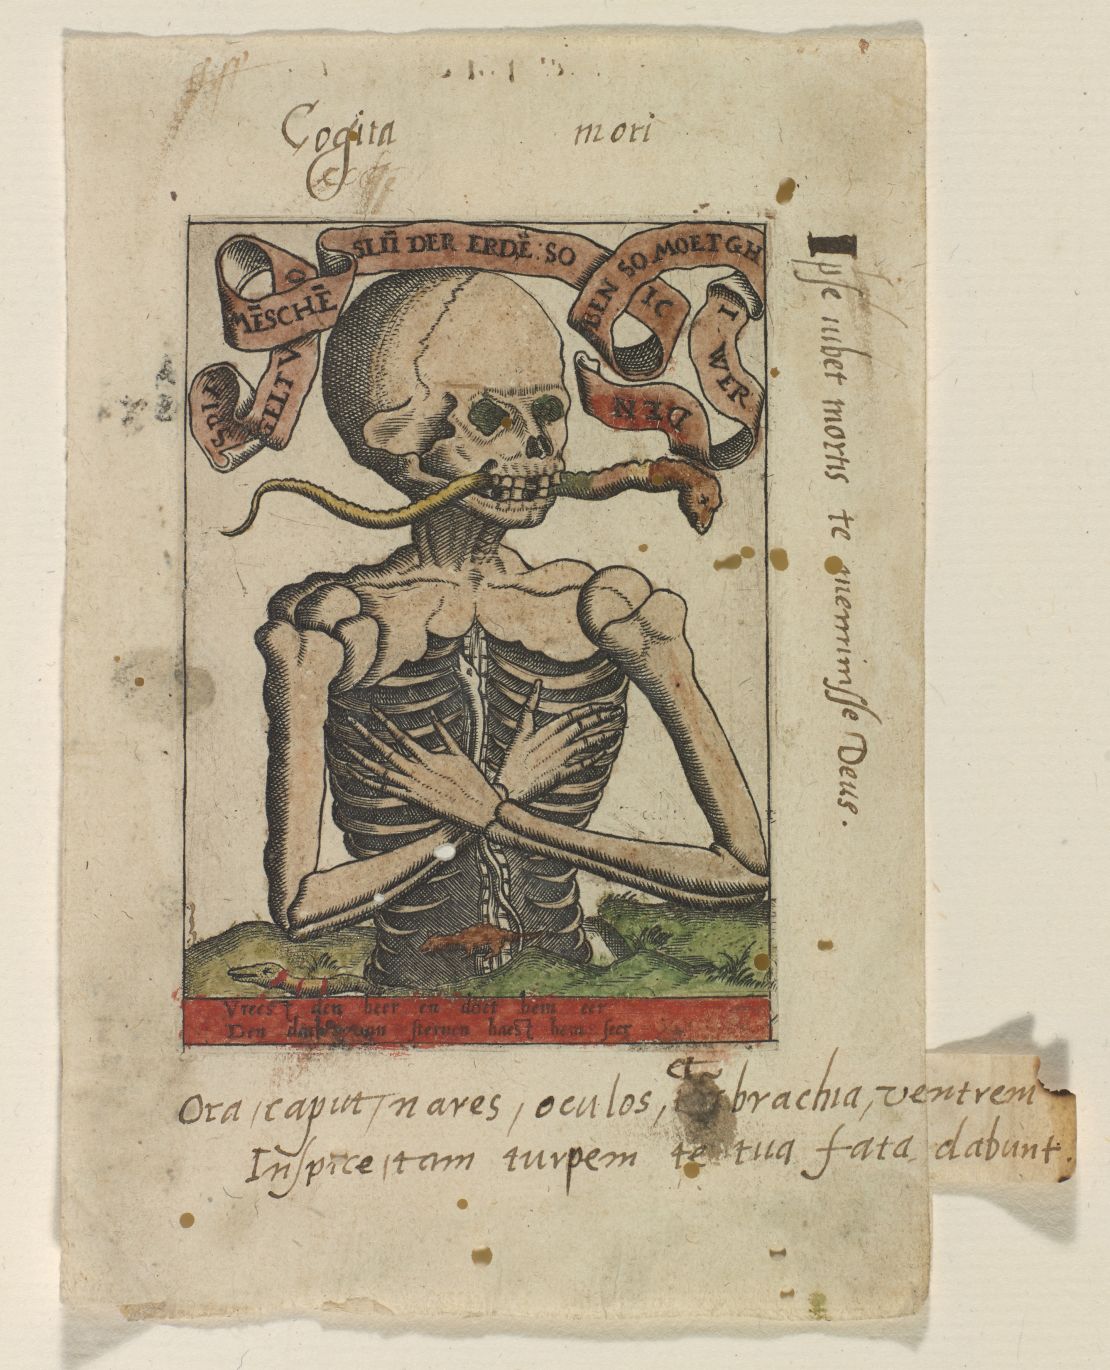 Cogita mori
SPIEGELT V O MĒSCHĒ
SLŪ DER ERDĒ: SO
IC BEN SO MOET GHI WERDEN
Ipse iubet mortis te meminisse Deus.
Vreest den heer en doet hem eer
Den sterven haest hem seer
Ora, caput, nares, oculos, et brachia, ventrem
Inspice, tam turpem te tua fata dabunt.